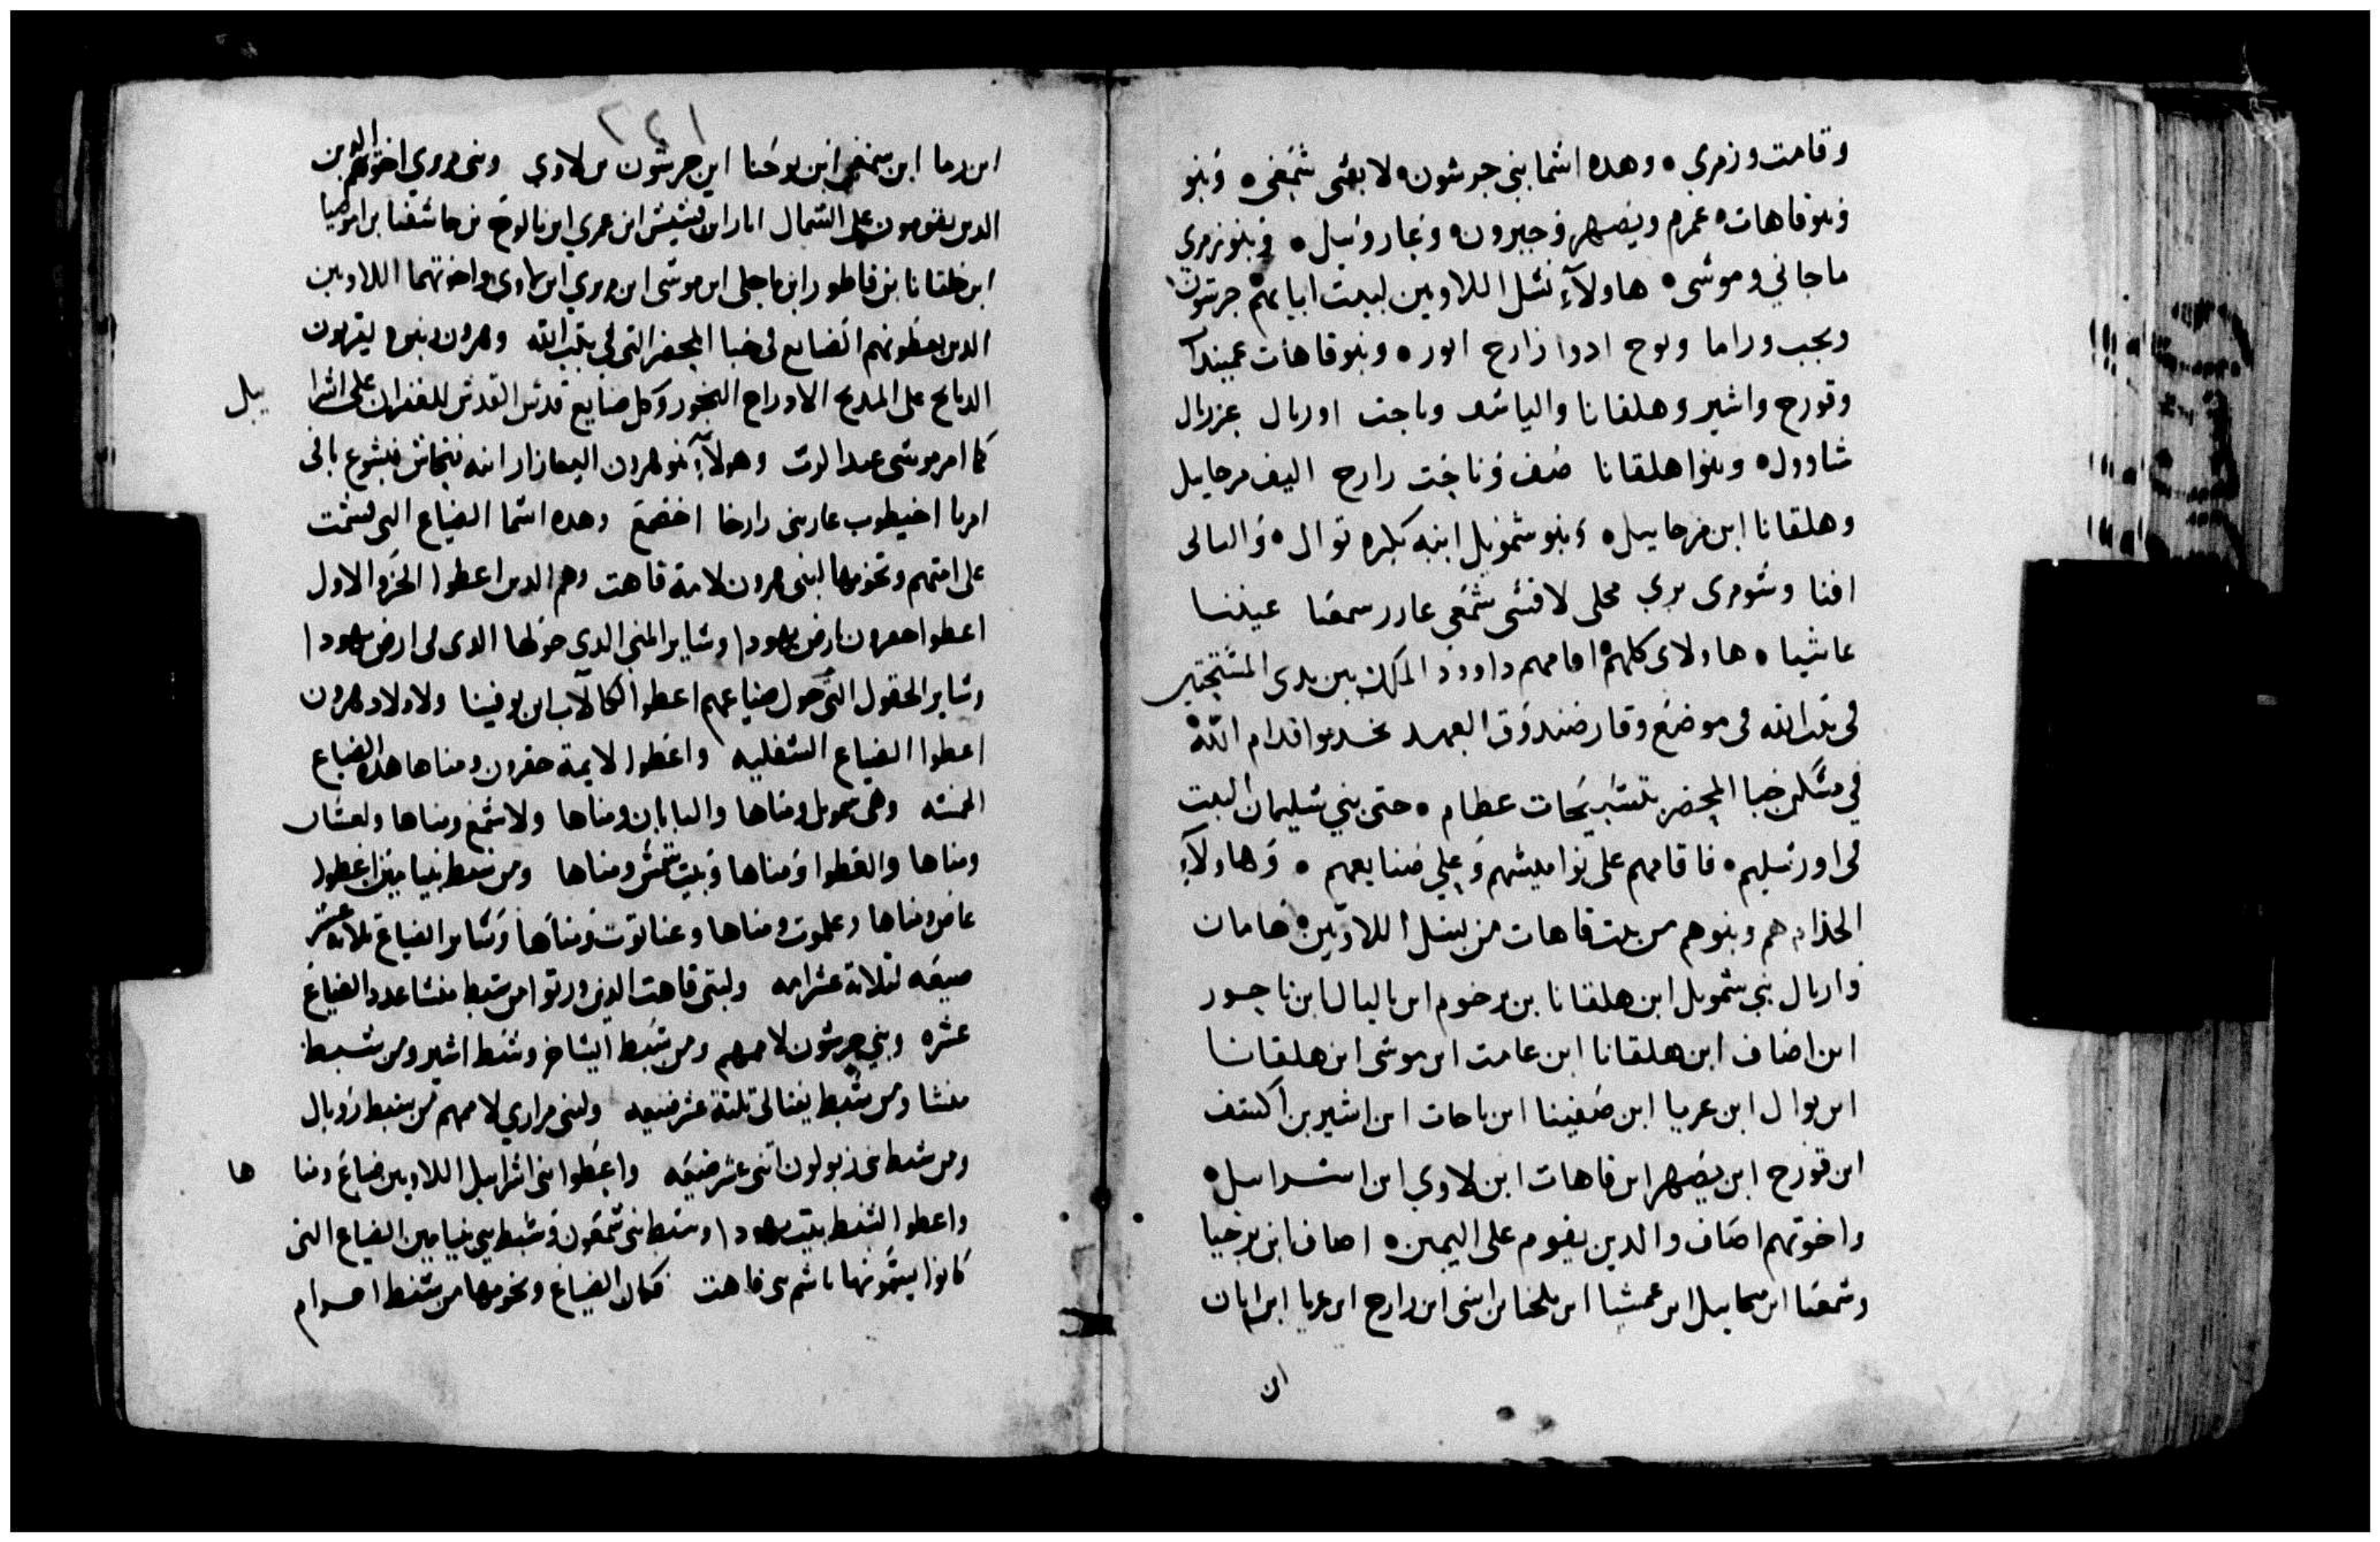 وقامت وزمري ه وهده اسما بني جرشون ه لابني شمعي ه وبنو
وبنو قاهات ه عمرم ويصهر وجبرون ه وعاروئيل ه وبنو زمري
ماجاني وموسى ه هاولآء نسل اللاويين لبيت ابايهم ه جرشون
ويجب وراما ويوح ادوا زارح اتور ه وبنو قاهات عميند
وقورح واشير وهلقانا والياسف وناجت اوريال عزريال
شاوول ه وبنوا هلقانا صف وناجت رارح اليف مرحاييل
وهلقانا ابن مرحاييل ه وبنو شمويل ابنه بكره توال ه والتالى
افنا وبنو مرى بري محلى لافنى شمعى عادر سمعنا عيننا
عاشيا ه هاولاى كلهم اقامهم داوود الملك بين يدى المستجير
فى بيت الله فى موضع وقار صندوق العهد يخدموا قدام الله
في مسكن خبا المحضر بتسبيحات عظام ه حتى بني سليمان البيت
فى اورشليم ه فاقامهم على نواميسهم وعلي صنايعهم ه وهاولآء
الخدام هم وبنوهم من بيت قاهات من نسل اللاويين ه هامان
واريال بني شمويل ابن هلقانا بن يرخوم ابن اليال ابن ناحور
ابن اصاف ابن هلقانا ابن عامت ابن موسى ابن هلقانا
ابن يوال ابن عريا ابن صفينا ابن ناحات ابن اشير بن اكسف
ابن قورح ابن يصهر ابن قاهات ابن لاوي ابن اسراييل ه
واخوتهم اصاف والدين يقوم على اليمين ه اصاف ابن برخيا
وشمعنا ابن ميخاييل ابن عمشيا ابن ملخيا بن اسى ابن رارح ابن عريا ابن ايان
ان
٢٤١
ابن رما ابن سمعى ابن يوحنا ابن جرشون بن لاوي وبنى مرري اخوتهم الدين
الدين يقومون على الشمال ابن عمري ابن مالوخ بن حاشفيا بن اموصيا
ابن خلقانا بن فاطور ابن ماحلى ابن موسى ابن مرري ابن لاوى واخوتهما اللاويين
الدين يعطونهم الصنايع فى خبا المحضر التى فى بيت الله وهرون وبنيه يقربون
الدبايح على المدبح الاوراح البخور وكل صنايع قدس القدس للغفران على اسرا
ييل
كما امر موسى عبد الرب وهولآء بنو هرون اليعازار ابنه فنحاس يشوع باقى
امريا اخيطوب عارينى رارخا اخصمع وهده اسما الضياع التى قسمت
على امتهم وتخومها لبنى هرون لامة قاهت وهم الدين اعطوا الجزو الاول
اعطوا حبرون بارض يهودا وساير المنى الدي حولها الدى فى ارض يهودا
وساير الحقول التى حول ضياعهم اعطوا الكالاب ابن يوفينا ولاولاد هرون
اعطوا الضياع السفليه واعطوا لايمة حفرون ومناها هده الضياع
الخمسه وهى ومناها واليابان ومناها ولاشمع ومناها ولعسان
ومناها والقطوا ومناها وبيت شمس ومناها ومن سبط بنيامين اعطوا
عامر ومناها وعلموت ومناها وعناتوت ومناها وساير الضياع تلاته عشر
ضيعه لتلاتة عشر امه ولبنى قاهت الدين ورتوا من سبط منشا عدد الضياع
عشره وبني جرشون لاممهم ومن سبط ايساخر وسبط اشير ومن سبط
منشا ومن سبط يفتالى تلتة عشر ضيعه ولبنى مراري لاممهم من سبط روبال
ومن سبط بنى زبولون اتنى عشر ضيعه واعطوا بنى اسراييل اللاويين ضياع ومنا
ها
واعطوا السبط بيت يهودا وسبط بنى شمعون وسبط بني بنيامين الضياع التى
كانوا يسمونها باسم بنى قاهت فكان الضياع وتخومها من سبط افرام